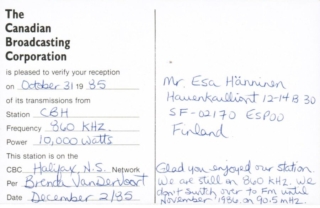 The
Canadian
Broadcasting
Corporation
is pleased to verify your reception
on October 31 19 85
of its transmissions from
Station CBH
Frequency 860 KHZ.
Power 10,000 Watts
This station is on the
CBC Halifax, N.S. Network
Per Brenda VanDerVoort
Date December 2/85
Mr. Esa Hänninen
Hauenkalliont 12-14 B 30
SF-02170 ESPOO
Finland
Glad you enjoyed our station.
We are still on 860 KHZ. We
don't switch over to FM until
November 1986 on 90.5 mHz.